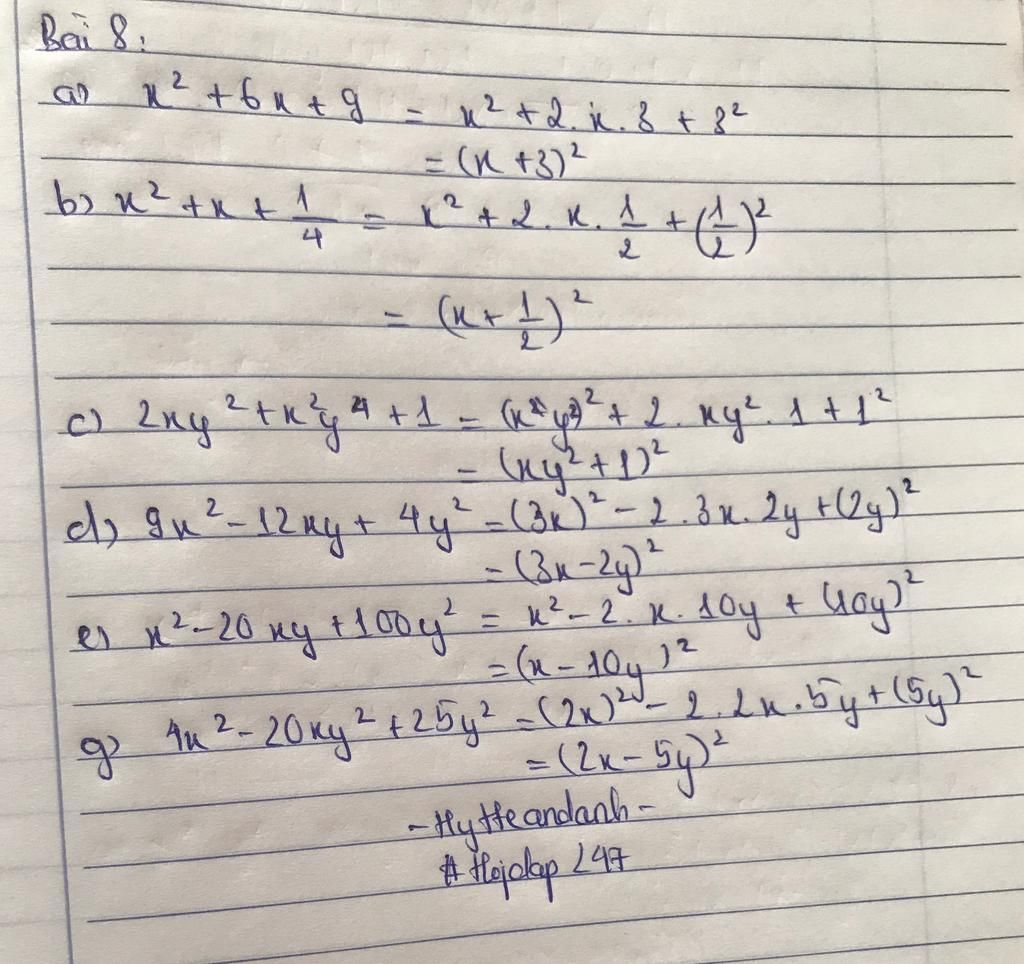 Bài 8:
a) x² + 6x + 9 = x² + 2.x.3 + 3²
= (x + 3)²
b) x² + x + 1/4 = x² + 2.x.1/2 + (1/2)²
= (x + 1/2)²
c) 2xy² + x²y⁴ + 1 = (xy²)² + 2.xy².1 + 1²
= (xy² + 1)²
d) 9x² - 12xy + 4y² = (3x)² - 2.3x.2y + (2y)²
= (3x - 2y)²
e) x² - 20xy + 100y² = x² - 2.x.10y + (10y)²
= (x - 10y)²
g) 4x² - 20xy² + 25y² = (2x)² - 2.2x.5y + (5y)²
= (2x - 5y)²
- HyHeandanh -
# Hojdap 247